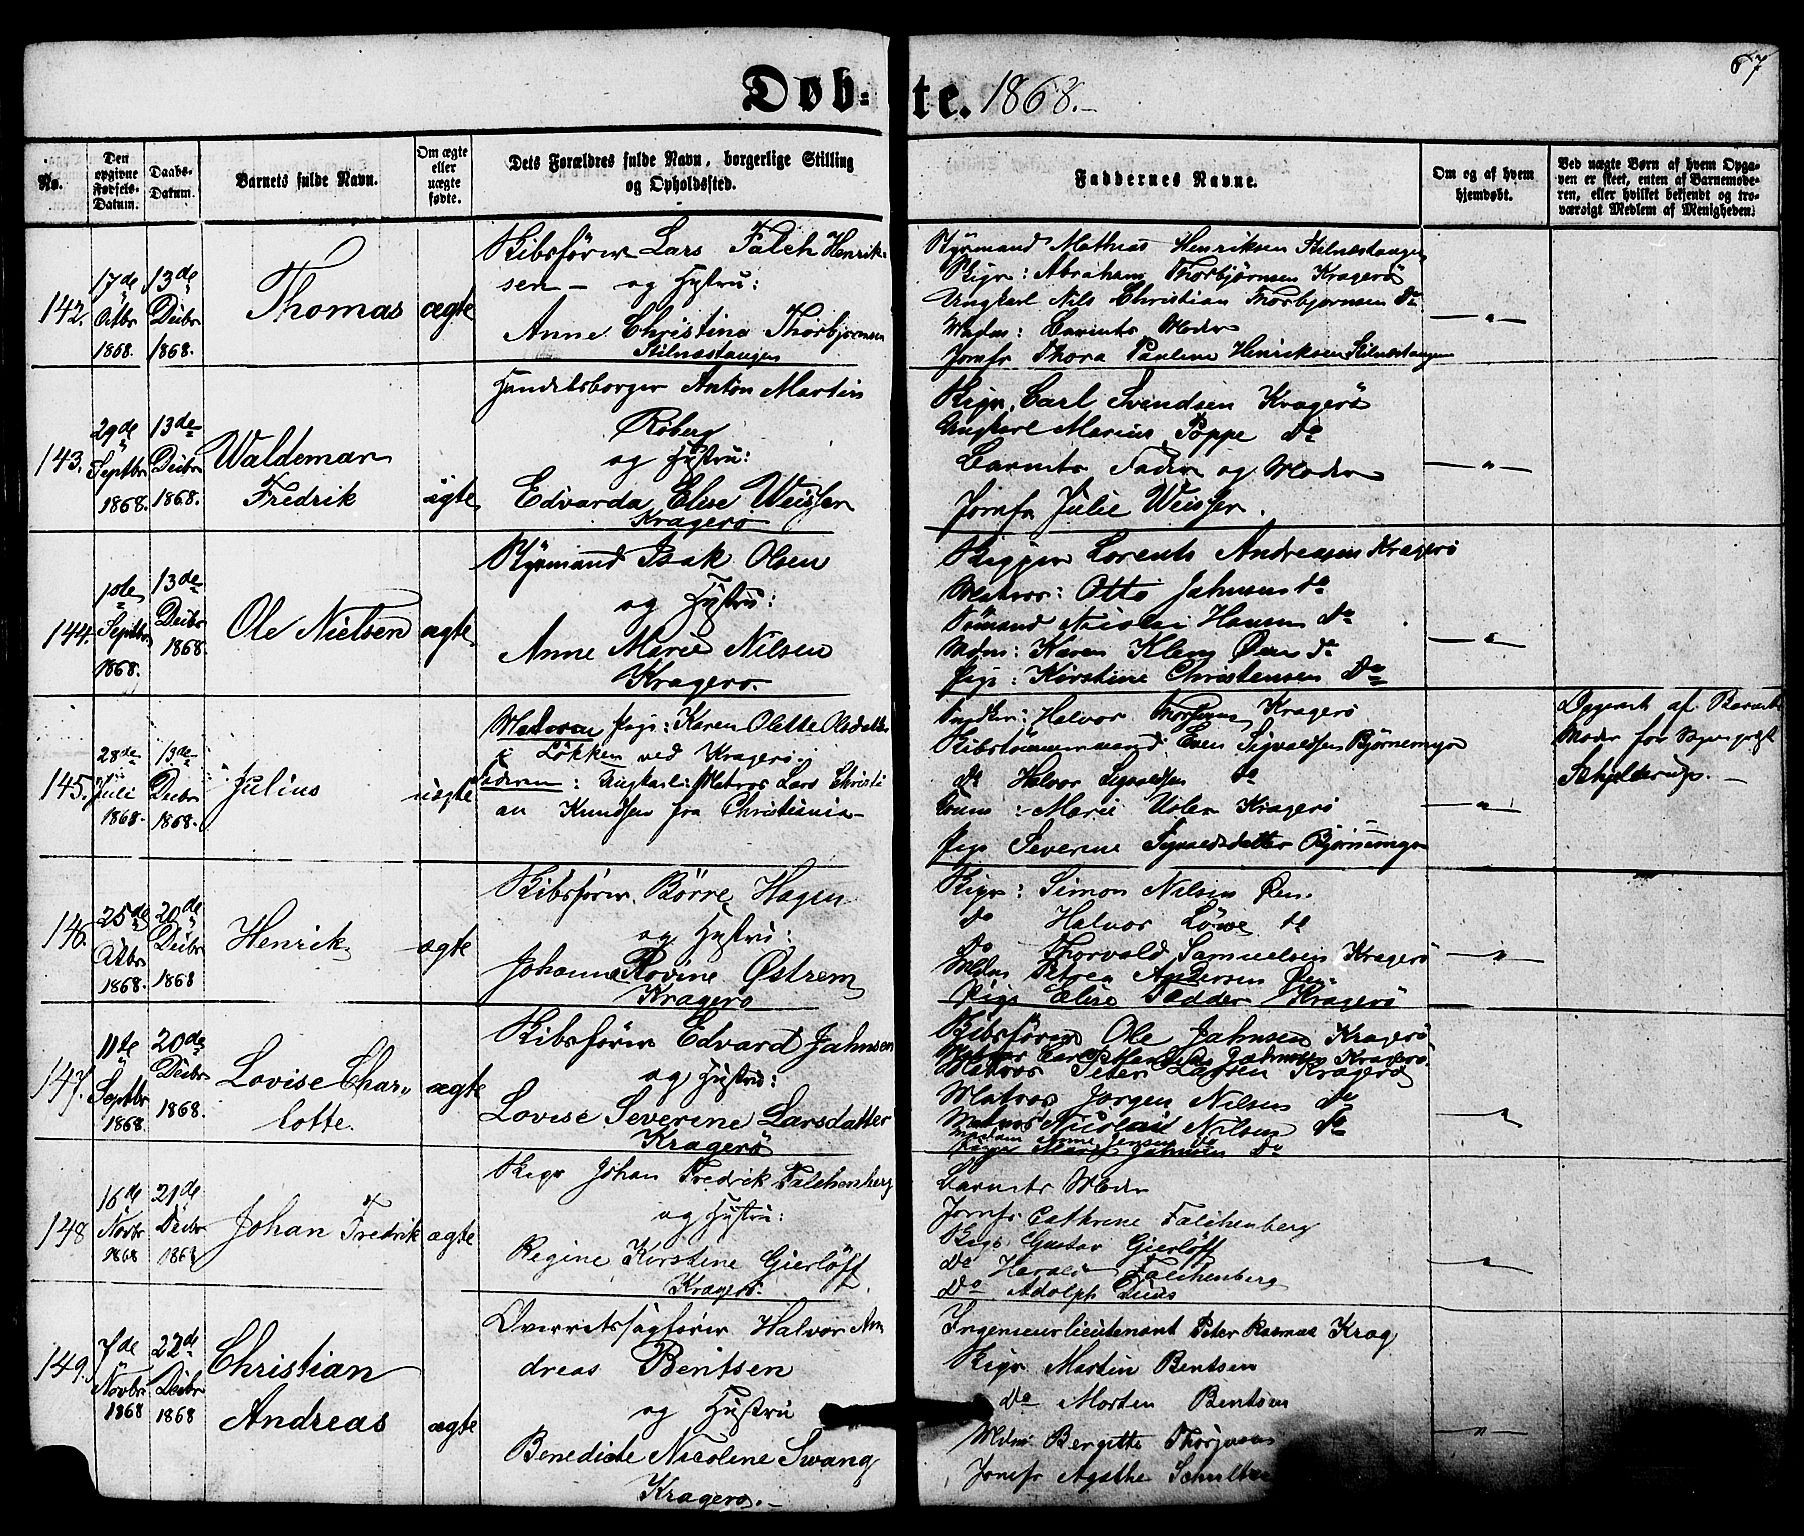 67
Døb-te. 1868.-
No.
Den opgivne Fødsels-Datum.
Daabs-Datum.
Barnets fulde Navn.
Om ægte eller uægte fødte.
Dets Forældres fulde Navn, borgerlige Stilling og Opholdssted.
Faddernes Navne.
Om og af hvem hjemdøbt.
Ved uægte Børn af hvem Opga-
ven er skeet, enten af Barnemode-
ren, eller hvilket bekjendt og tro-
værdigt Medlem af Menigheden.
142.
17de Octbr 1868.
13de Decbr 1868.
Thomas
ægte
Skibsfører Lars Falch Henrik-
sen - og Hustru:
Anne Christina Thorbjørnsen
Stilnæstangen
Styrmand Mathias Henriksen Stilnæstangen
Skpr: Abraham Thorbjørnsen Kragerø
Ungkarl Nils Christian Thorbjørnsen do
Mdm: Barnets Moder
Jomfr Thora Pauline Henriksen Stilnæstangen
143.
29de Septbr 1868.
13de Decbr 1868.
Waldemar
Fredrik
ægte
Handelsborger Anton Martin
Roberg
og Hustru:
Edvarda Elise Weisser
Kragerø
Skpr. Carl Svendsen Kragerø
Ungkarl Marius Poppe do
Barnets Fader og Moder
Jomfr Julie Weisser.
144.
1ste Septbr 1868.
13de Decbr 1868.
Ole Nielsen
ægte
Styrmand Isak Olsen
og Hustru:
Anne Marie Nilsen
Kragerø.
Skipper Lorents Andreasen Kragerø
Matros: Otto Jahnsen do
Sømand Nicolai Hansen do
Mdm: Karen Øen do
Pige: Kirstine Christensen do
145.
28de Juli 1868.
13de Decbr 1868.
Julius
uægte
Moderen Pige: Karen Olette Olsdatter
Løkken ved Kragerø.
Faderen: Ungkarl: Matros Lars Christi
an Knudsen fra Christiania
Halvor Kragerø
Skibstømmermand Even Sigvaldsen Bjørnemyr
do Halvor Sigvaldsen do
Marie Kragerø
Pige Severine Sigvaldsdatter Bjørnemyr
Opgivet af Barnets
Moder for
Schjelderup. -
146.
25de Octbr 1868.
20de Decbr 1868
Henrik
ægte
Skibsfører Børre Hagen
og Hustru:
Johanne Rovine Østrem
Kragerø
Skpr: Simon Nilsen Øen.
do Halvor Løwe do
do Thorvald Samuelsen Kragerø
Mdm Petrea Andersen Øen
Pige Elise Fedder Kragerø
147.
11te Septbr 1868.
20de Decbr 1868.
Lovise Char-
lotte.
ægte
Skibsfører Edvard Jahnsen
og Hustru:
Lovise Severine Larsdatter
Kragerø
Skibsfører Ole Jahnsen Kragerø
Jahnsen Kragerø
Matros Peter Larsen Kragerø
Matros Jørgen Nilsen do
Matros Nicolai Nilsen do
Madam Anne Jensen do
Pige Marie Jahnsen do
148
16de Novbr 1868
21de Decbr 1868
Johan Fredrik
ægte
Skpr Johan Fredrik Falchenberg
og Hustru:
Regine Kirstine Gierløff
Kragerø.
Barnets Moder
Jomfr. Cathrine Falchenberg
Skpr. Gustav Gierløff
do Harald Falchenberg
do Adolph
149.
7de Novbr 1868
22de Decbr 1868
Christian
Andreas
ægte
Overretssagfører Halvor An
dreas Bentsen
og Hustru
Benedicte Nicoline Swang
Kragerø.-
Ingenieurlieutenant Peter Rasmus Krag
Skpr Martin Bentsen
do Morten Bentsen
Mdm Bergitte
Jomfr Agathe